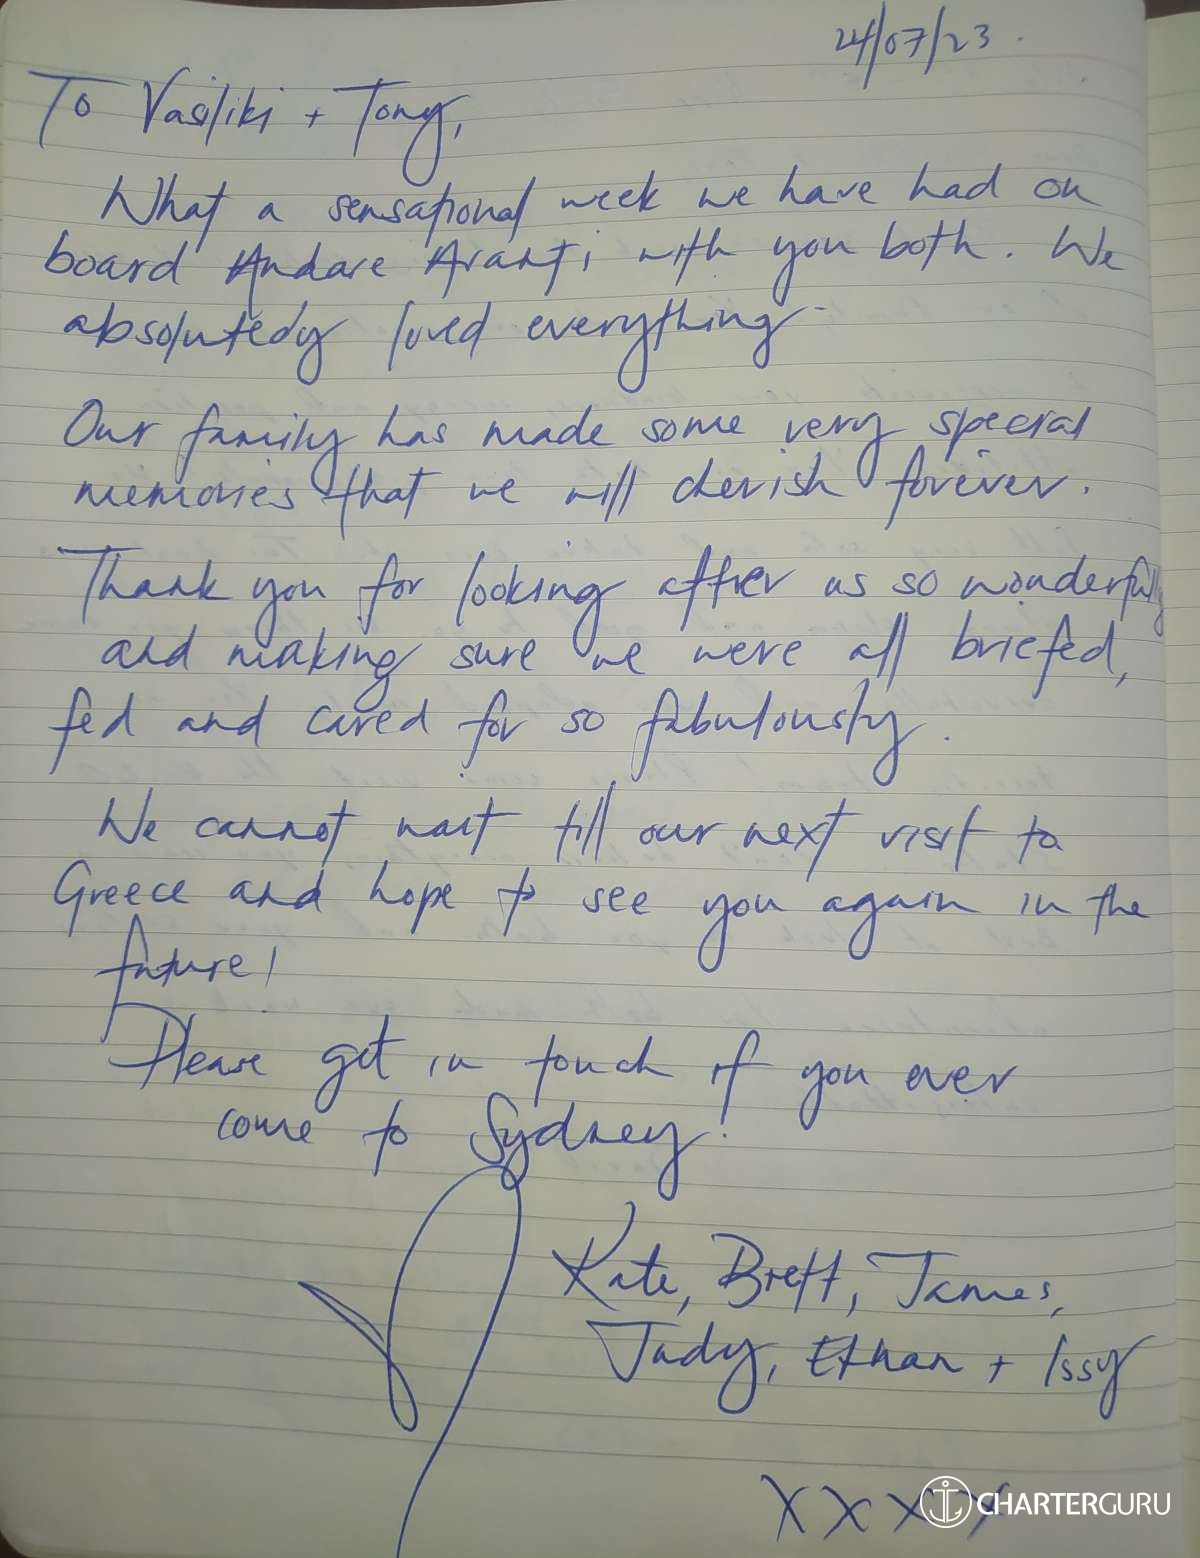 24/07/23.
To Vasiliki + Tony,
What a sensational week we have had on
board Andare Avanti with you both. We
absolutely loved everything
Our family has made some very special
memories that we will cherish forever.
Thank you for looking after us so wonderfully
and making sure we were all briefed,
fed and cared for so fabulously.
We cannot wait till our next visit to
Greece and hope to see you again in the
future!
Please get in touch if you ever
come to Sydney!
Kate, Brett, James,
Judy, Ethan + Issy
XXXX
CHARTERGURU